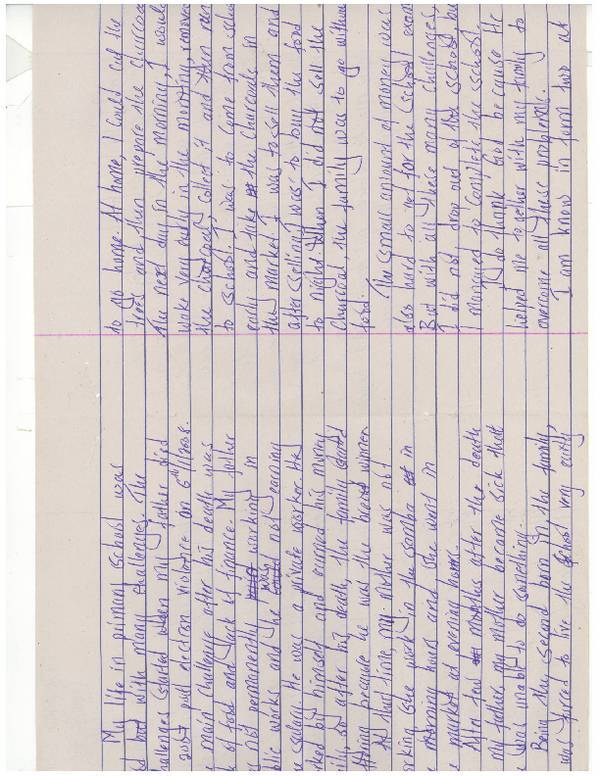 My life in primary school was
with many challenges. The
challenges started when my father died
post election violence on 6th/1/2008.
main challenge after his death was
of food and lack of finance. My father
not permanently working in
blic works and he was not earning
salary. He was a private worker. He
by himself and earned his money
so after his death, the family started
because he was the bread winner.
At that time, my mother was not
work in the samba in
morning hours and she went in
market at evening hours.
After few months after the death
my father, my mother became sick that
was unable to do something.
Being the second born in the family,
was forced to live the school very early,
to go home. At home, I could cut the
trees and then prepare the charcoal
The next day in the morning, I would
wake very early in the morning, remove
the charcoal, collect it and then run
to school. I was to come from school
early and take the charcoals in
the market. I was to sell them and
after selling I was to buy the food
to night. When I did not sell the
charcoal, the family was to go without
food.
The small amount of money was
also hard to get for the school exam
But with all these many challenges,
I did not drop out of the school but
I managed to complete the school.
I do thank God because He
helped me together with my family to
overcome all these problems.
I am know in form two at